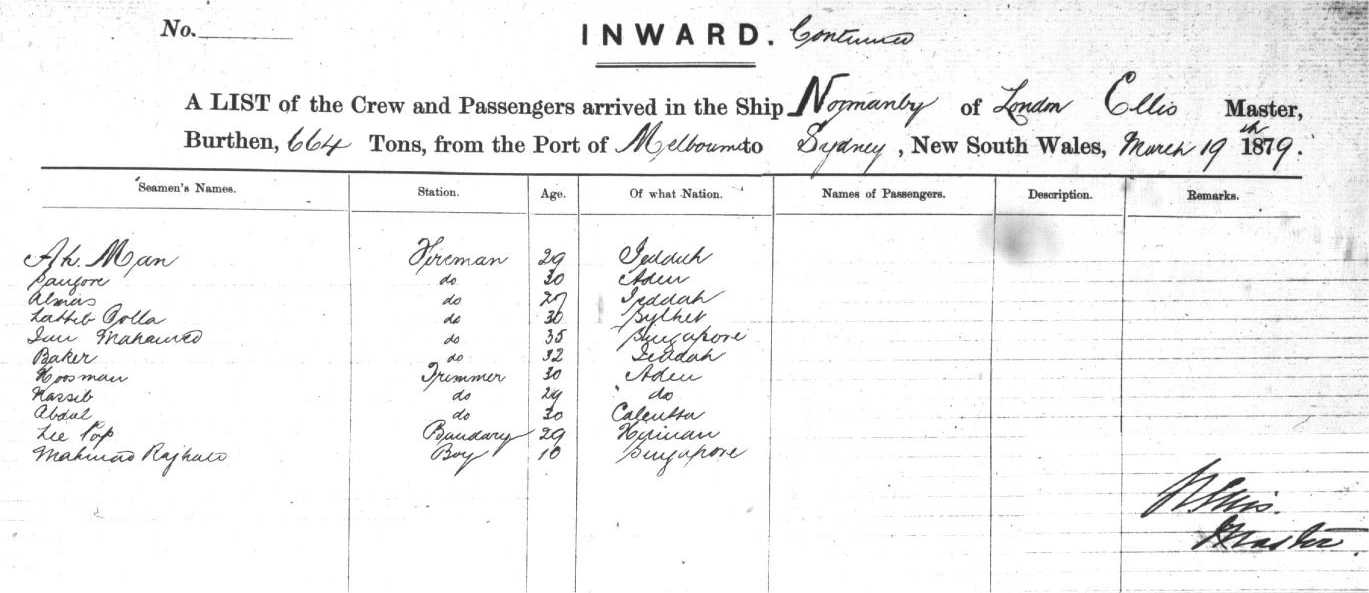 No.
INWARD. Continued
A LIST of the Crew and Passengers arrived in the Ship Normanby of London Ellis Master,
Burthen, 664 Tons, from the Port of Melbourne to Sydney, New South Wales, March 19th 1879.
Seamen's Names. Station. Age. Of what Nation. Names of Passengers. Description. Remarks.
Ah. Man Fireman 29 Jeddah
do 30 Aden
Almas do 27 Jeddah
do 30 Sylhet
Mahamed do 35 Singapore
Baker do 32 Jeddah
Hoosman Trimmer 30 Aden
Nassib do 29 do
Abdul do 30 Calcutta
Lee Pop Bandary 29
Boy 10 Singapore
Ellis.
Master.